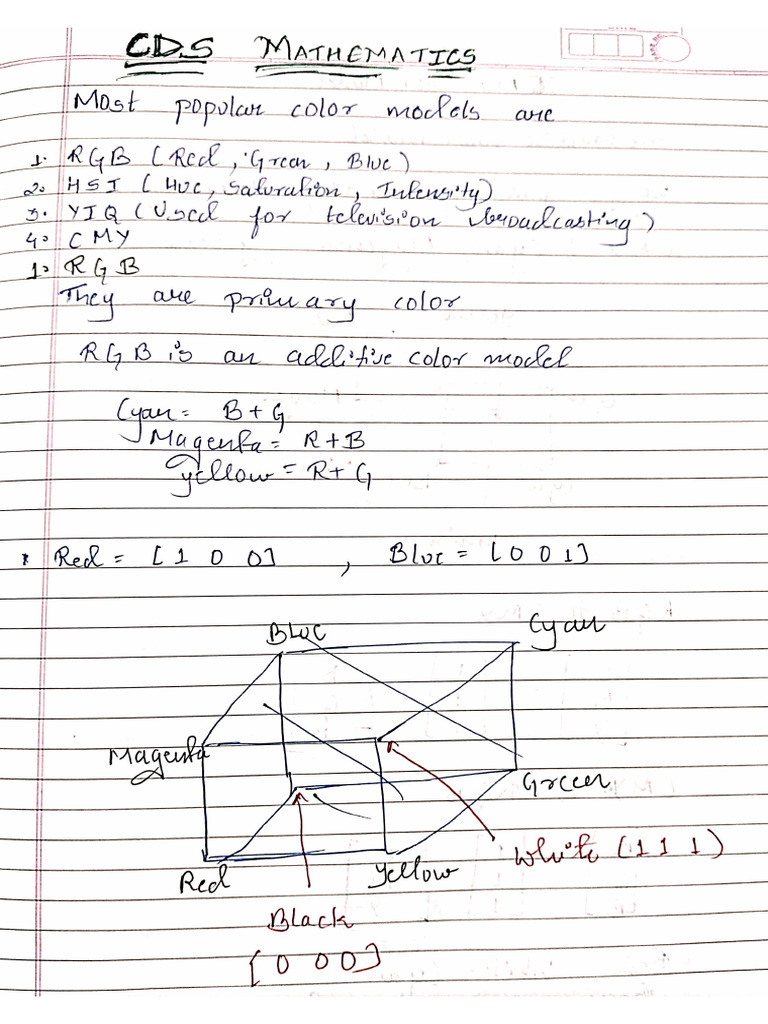 CDS MATHEMATICS
Most popular color models are
1. RGB (Red, Green, Blue)
2. HSI (Hue, Saturation, Intensity)
3. YIQ (Used for television broadcasting)
4. CMY
1. RGB
They are primary color
RGB is an additive color model
Cyan = B + G
Magenta = R + B
Yellow = R + G
* Red = [1 0 0] , Blue = [0 0 1]
Blue
Cyan
Magenta
Green
White (1 1 1)
Red
Yellow
Black
[0 0 0]